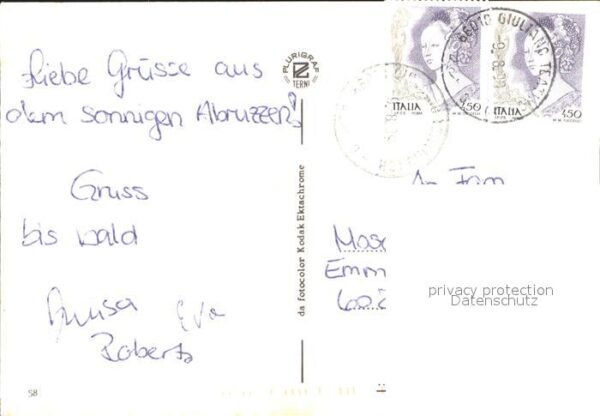 Liebe Grüsse aus
dem sonnigen Abruzzen!
Gruss
bis bald
Eva
Roberto
58
PLURIGRAF
TERNI
da fotocolor Kodak Ektachrome
ITALIA
450
ITALIA
450
GIULIANO TE
An Fam
Mos
Emm
privacy protection
Datenschutz